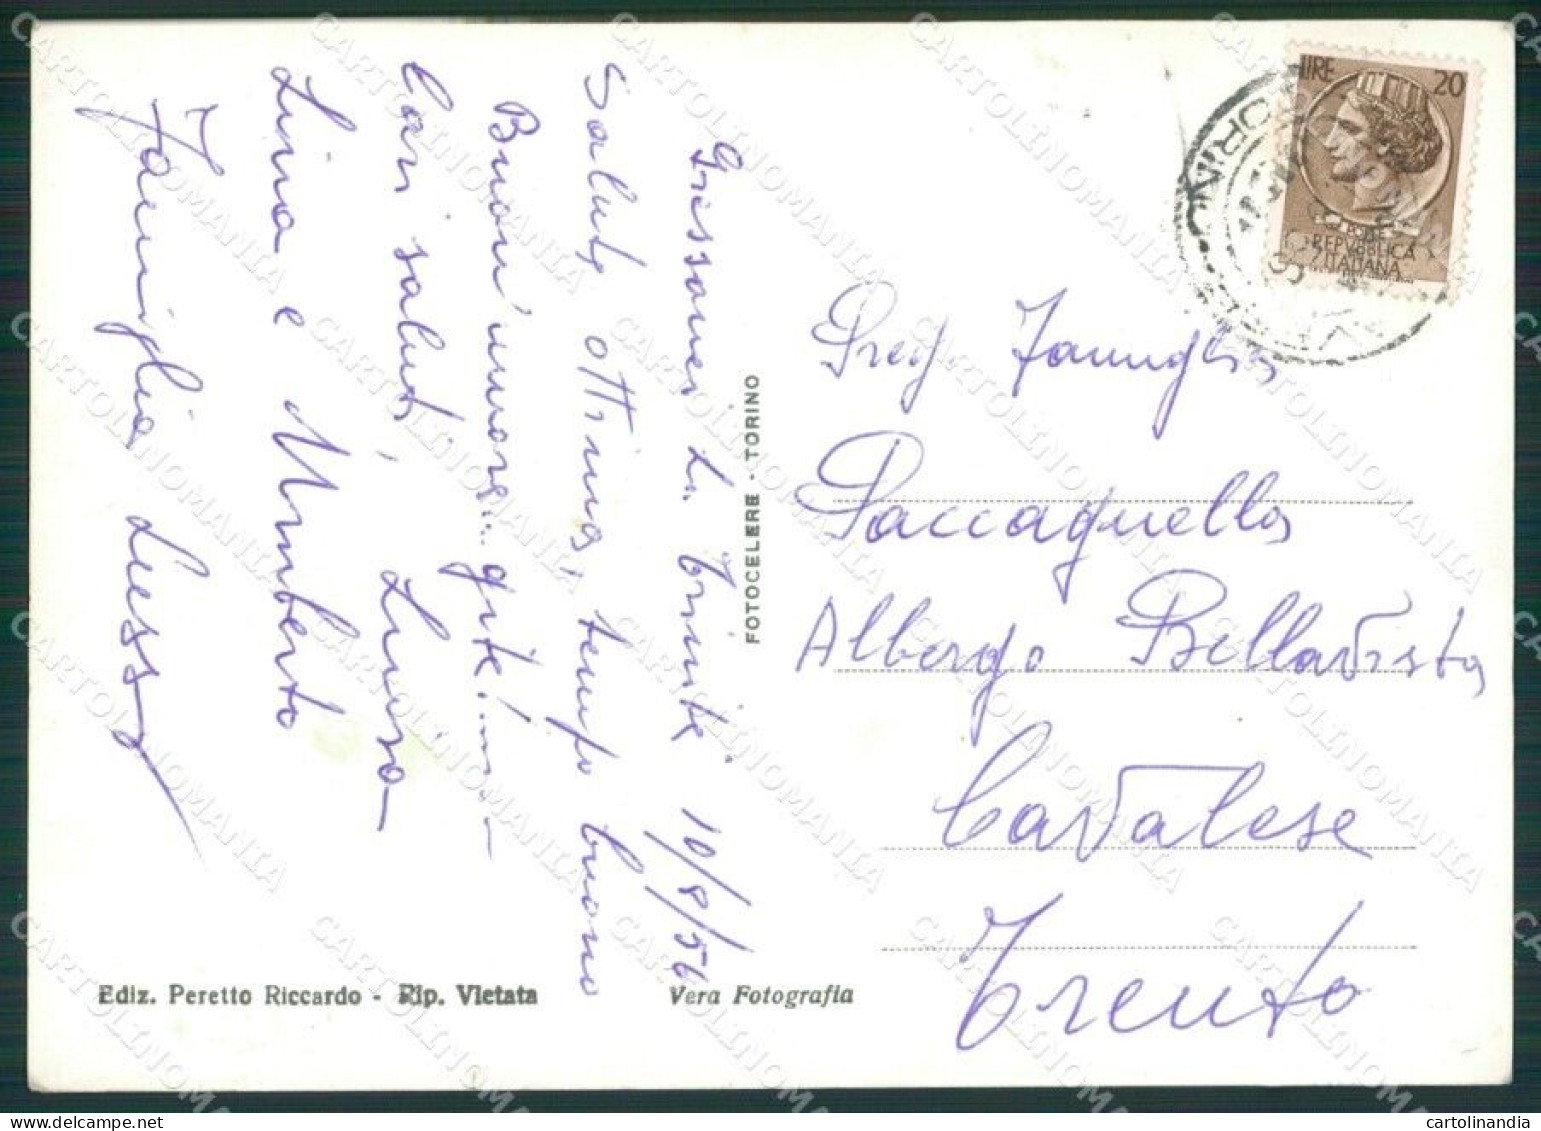 Gressoney L. Trinité 10/8/56
Salute ottima, tempo buono
Buon'umore... gite!...
Cari saluti, Luisa
Lina e Umberto
Famiglia Lusso
FOTOCELERE - TORINO
LIRE 20
REPVBBLICA
ITALIANA
Preg. Famiglia
Paccagnella
Albergo Bellavista
Cavalese
Trento
Ediz. Peretto Riccardo - Rip. Vietata
Vera Fotografia
CARTOLINOMANIA
cartolinandia